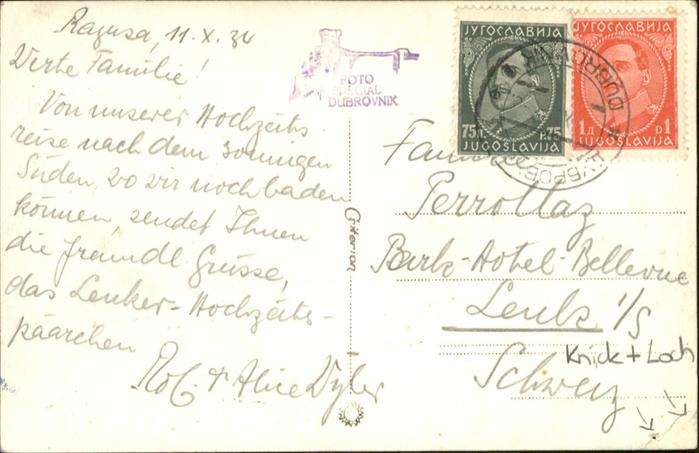 Ragusa, 11.X.34
Werte Familie!
Von unserer Hochzeits
reise nach dem sonnigen
Süden, wo wir noch baden
können, sendet Ihnen
die freundl Grüsse,
das Lenker-Hochzeits-
päärchen
Rob & Alice Wyler
FOTO
SPECIAL
DUBROVNIK
Criterion
ЈУГОСЛАВИЈА
75п. p.75
JUGOSLAVIJA
ЈУГОСЛАВИЈА
1д D1
JUGOSLAVIJA
Familie
Perrollaz
Park-Hotel-Bellevue
Lenk i/S
Schweiz
Knick + Loch